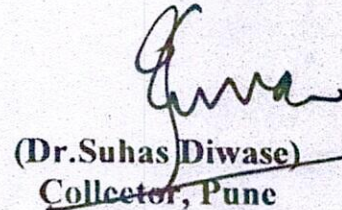 (Dr.Suhas Diwase)
Collcetor, Pune